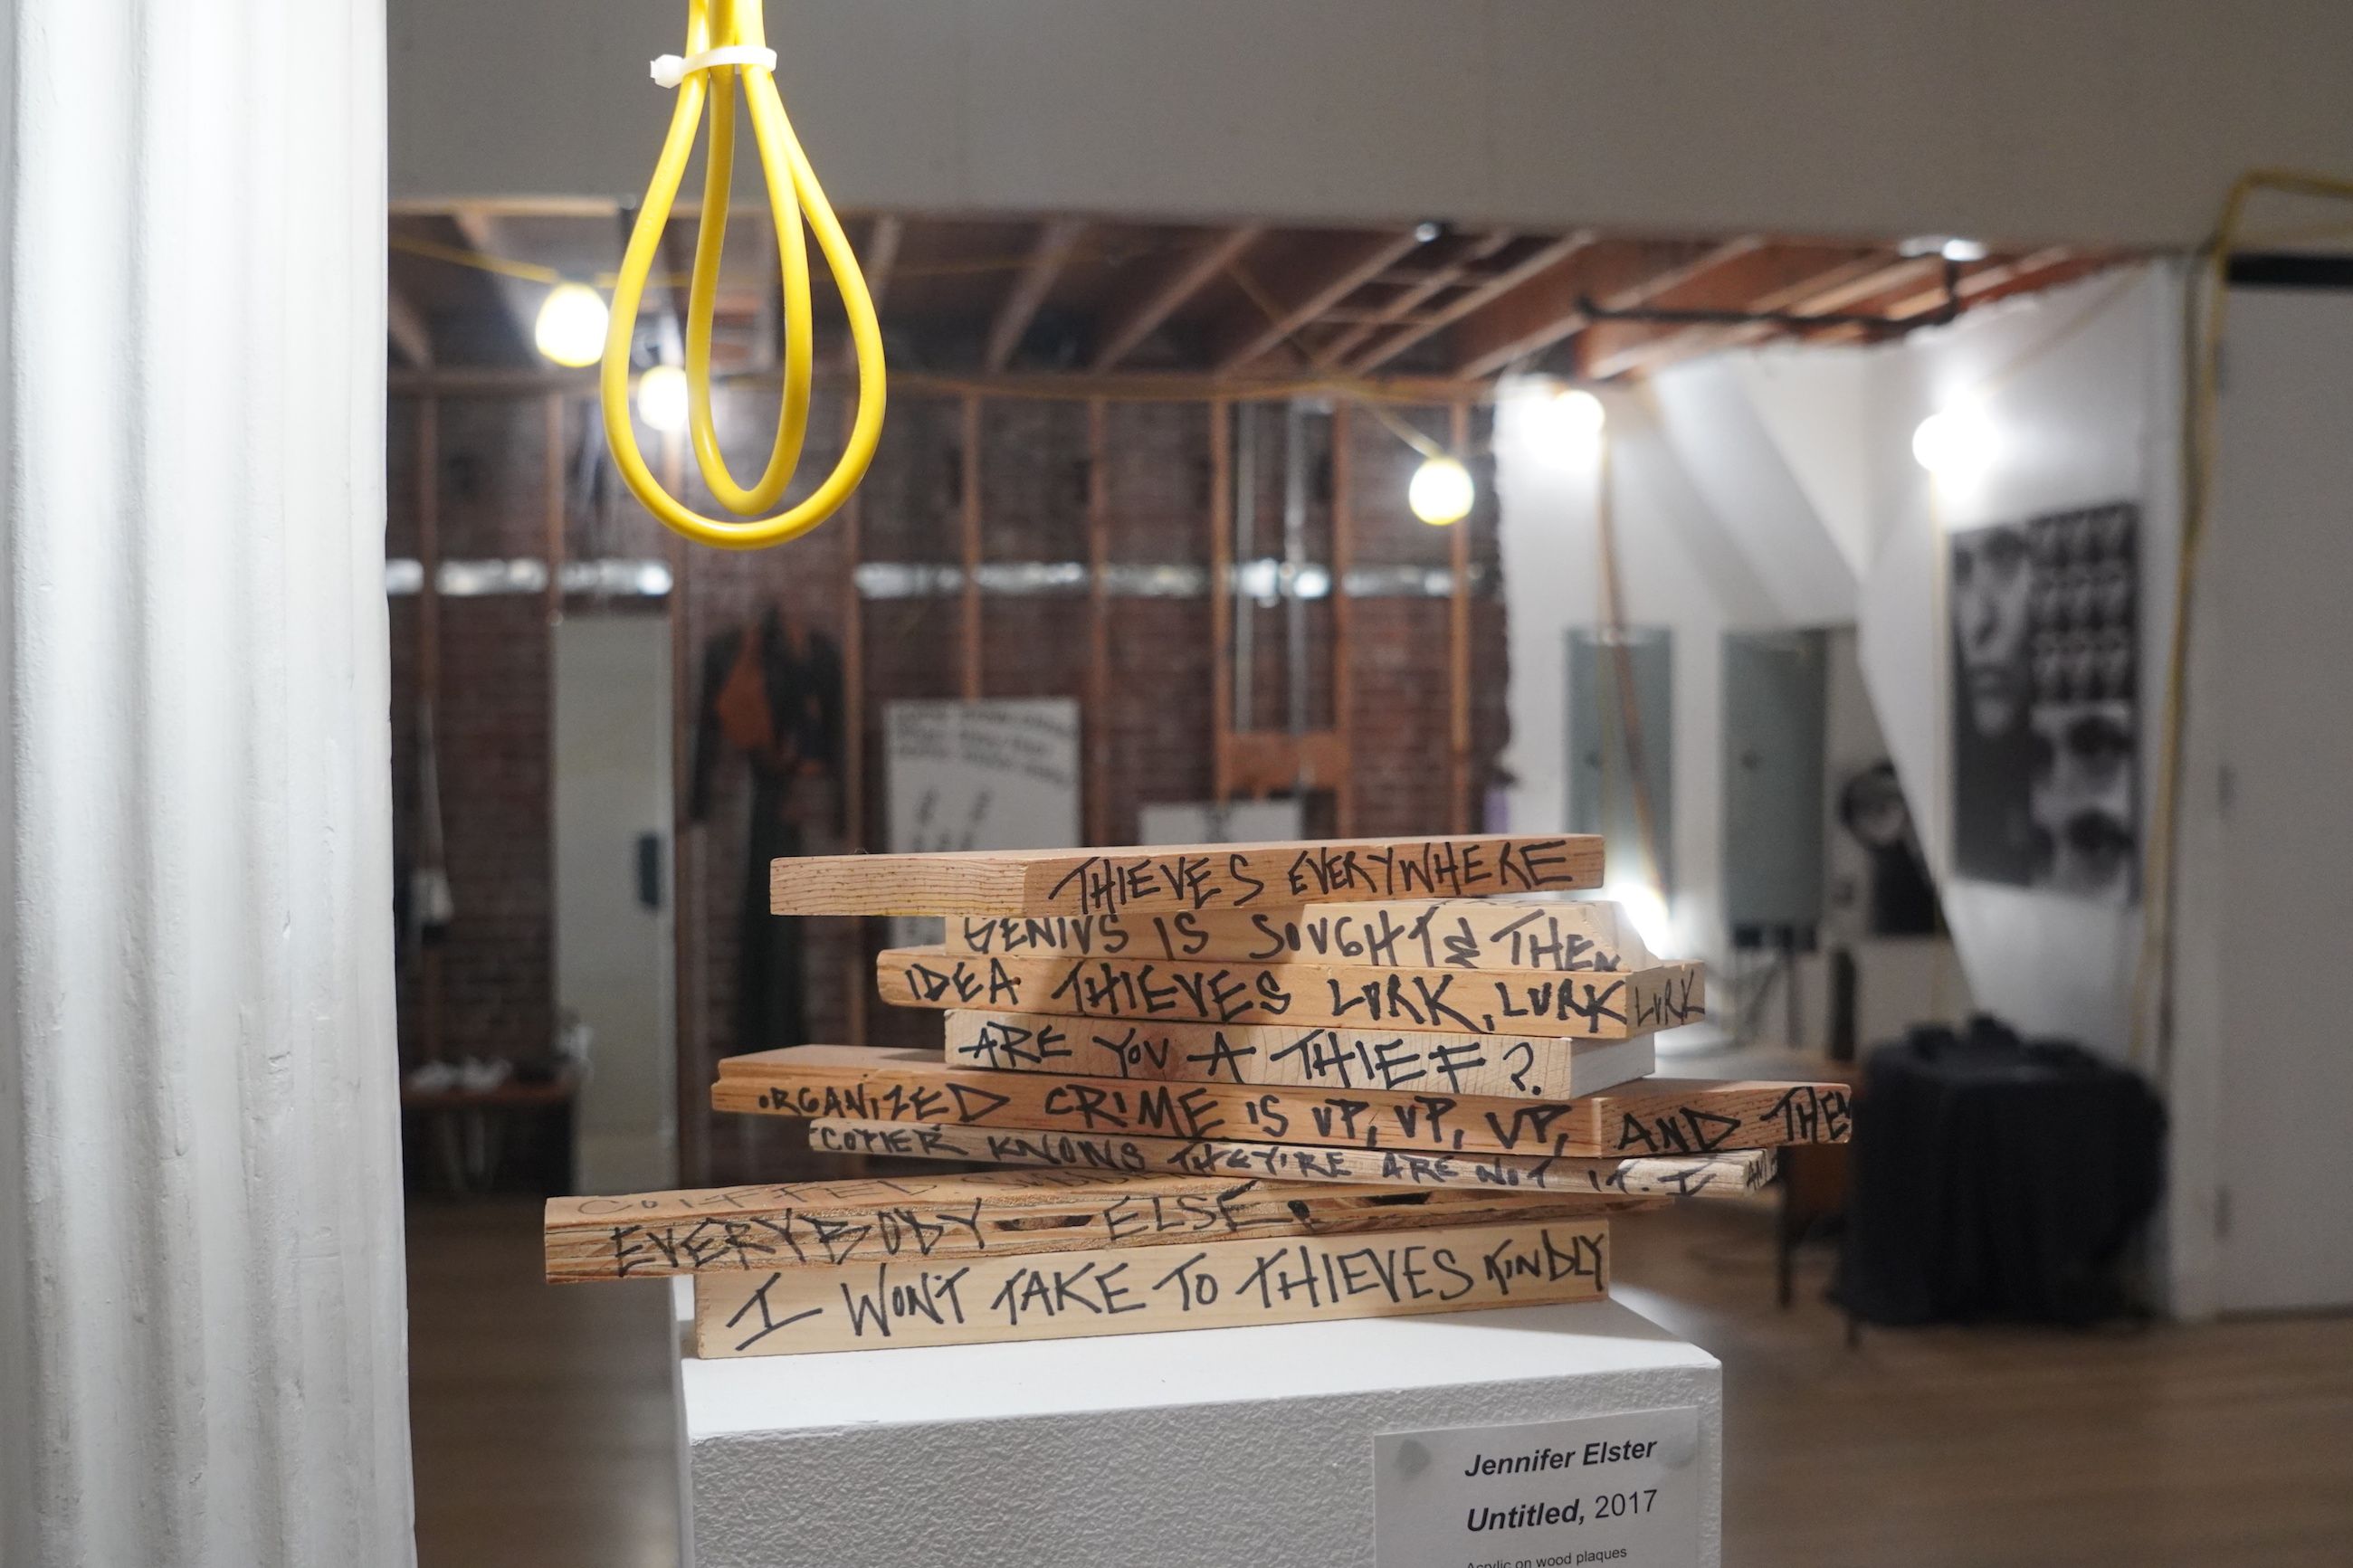 THIEVES EVERYWHERE
GENIUS IS SOUGHT & THEN
IDEA THIEVES LURK, LURK LURK
ARE YOU A THIEF?
ORGANIZED CRIME IS UP, UP, UP, AND THEN
COPIER KNOWS THEY'RE ARE NOT IT. I AM
EVERYBODY ELSE.
I WON'T TAKE TO THIEVES KINDLY
Jennifer Elster
Untitled, 2017
Acrylic on wood plaques